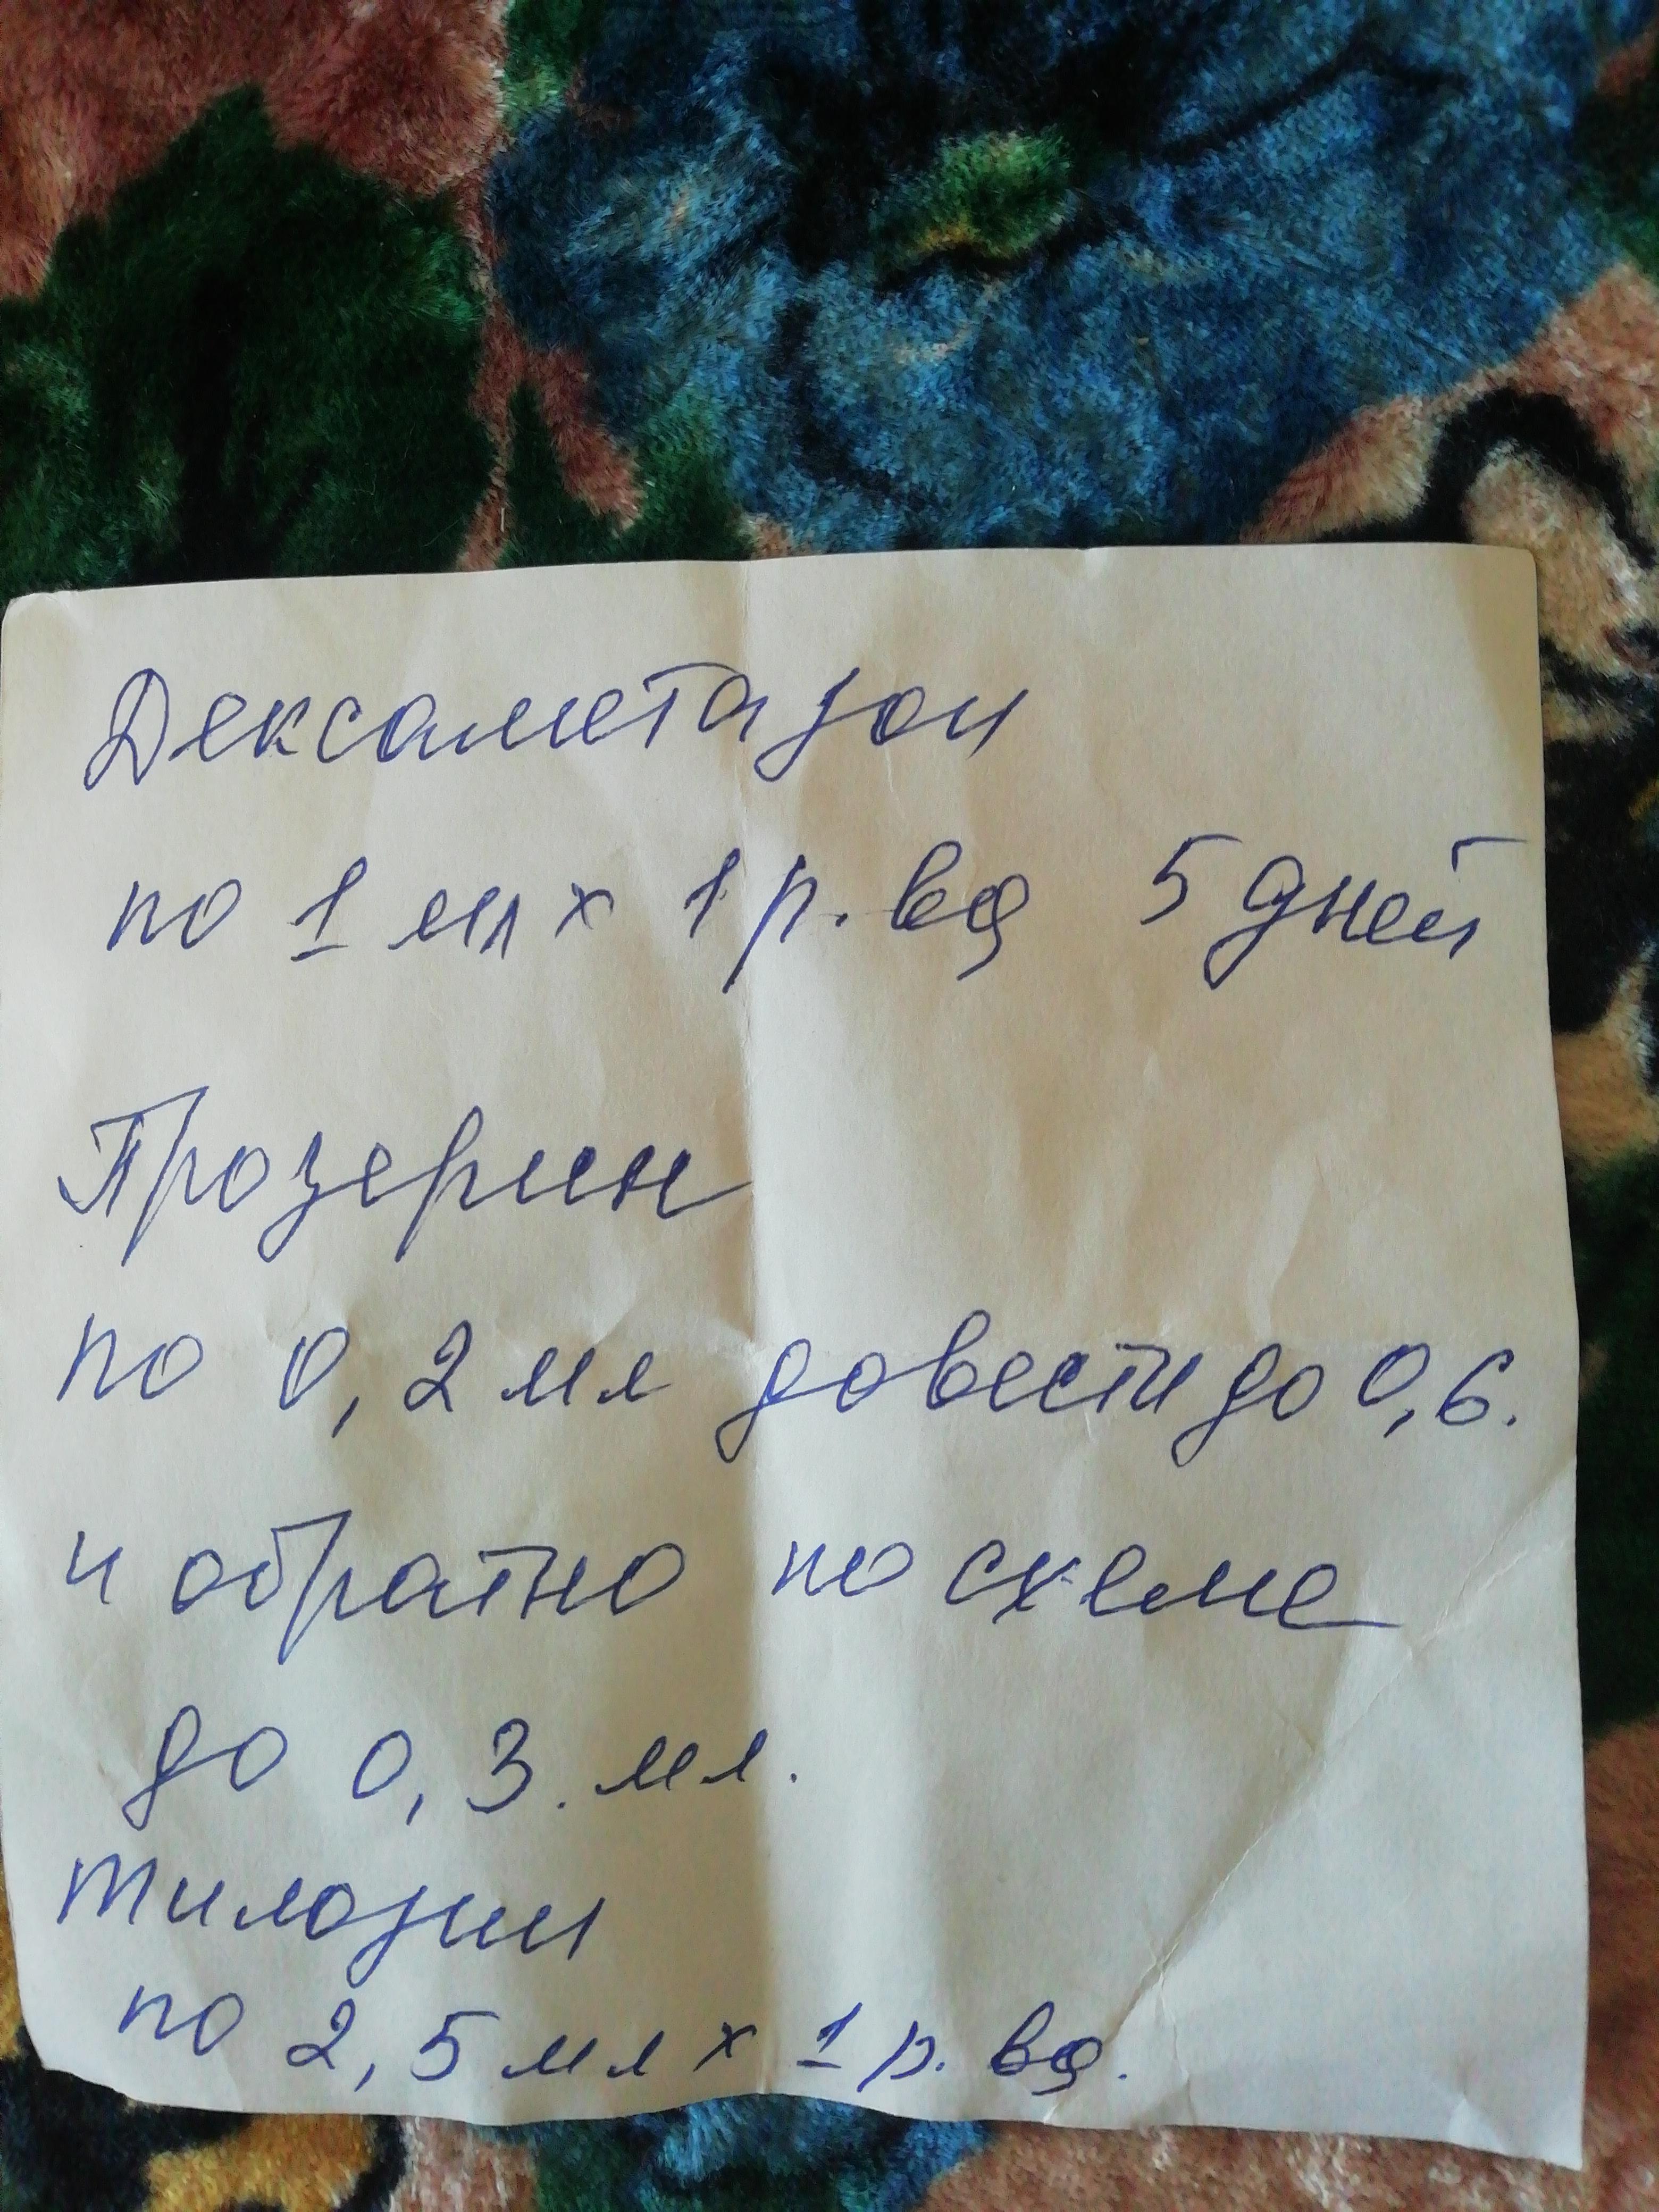 Дексаметазон
по 1 мл х 1 р. вд 5 дней
Прозерин
по 0,2 мл довести до 0,6.
и обратно по схеме
до 0,3. мл.
тилозин
по 2,5 мл х 1 р. вд.